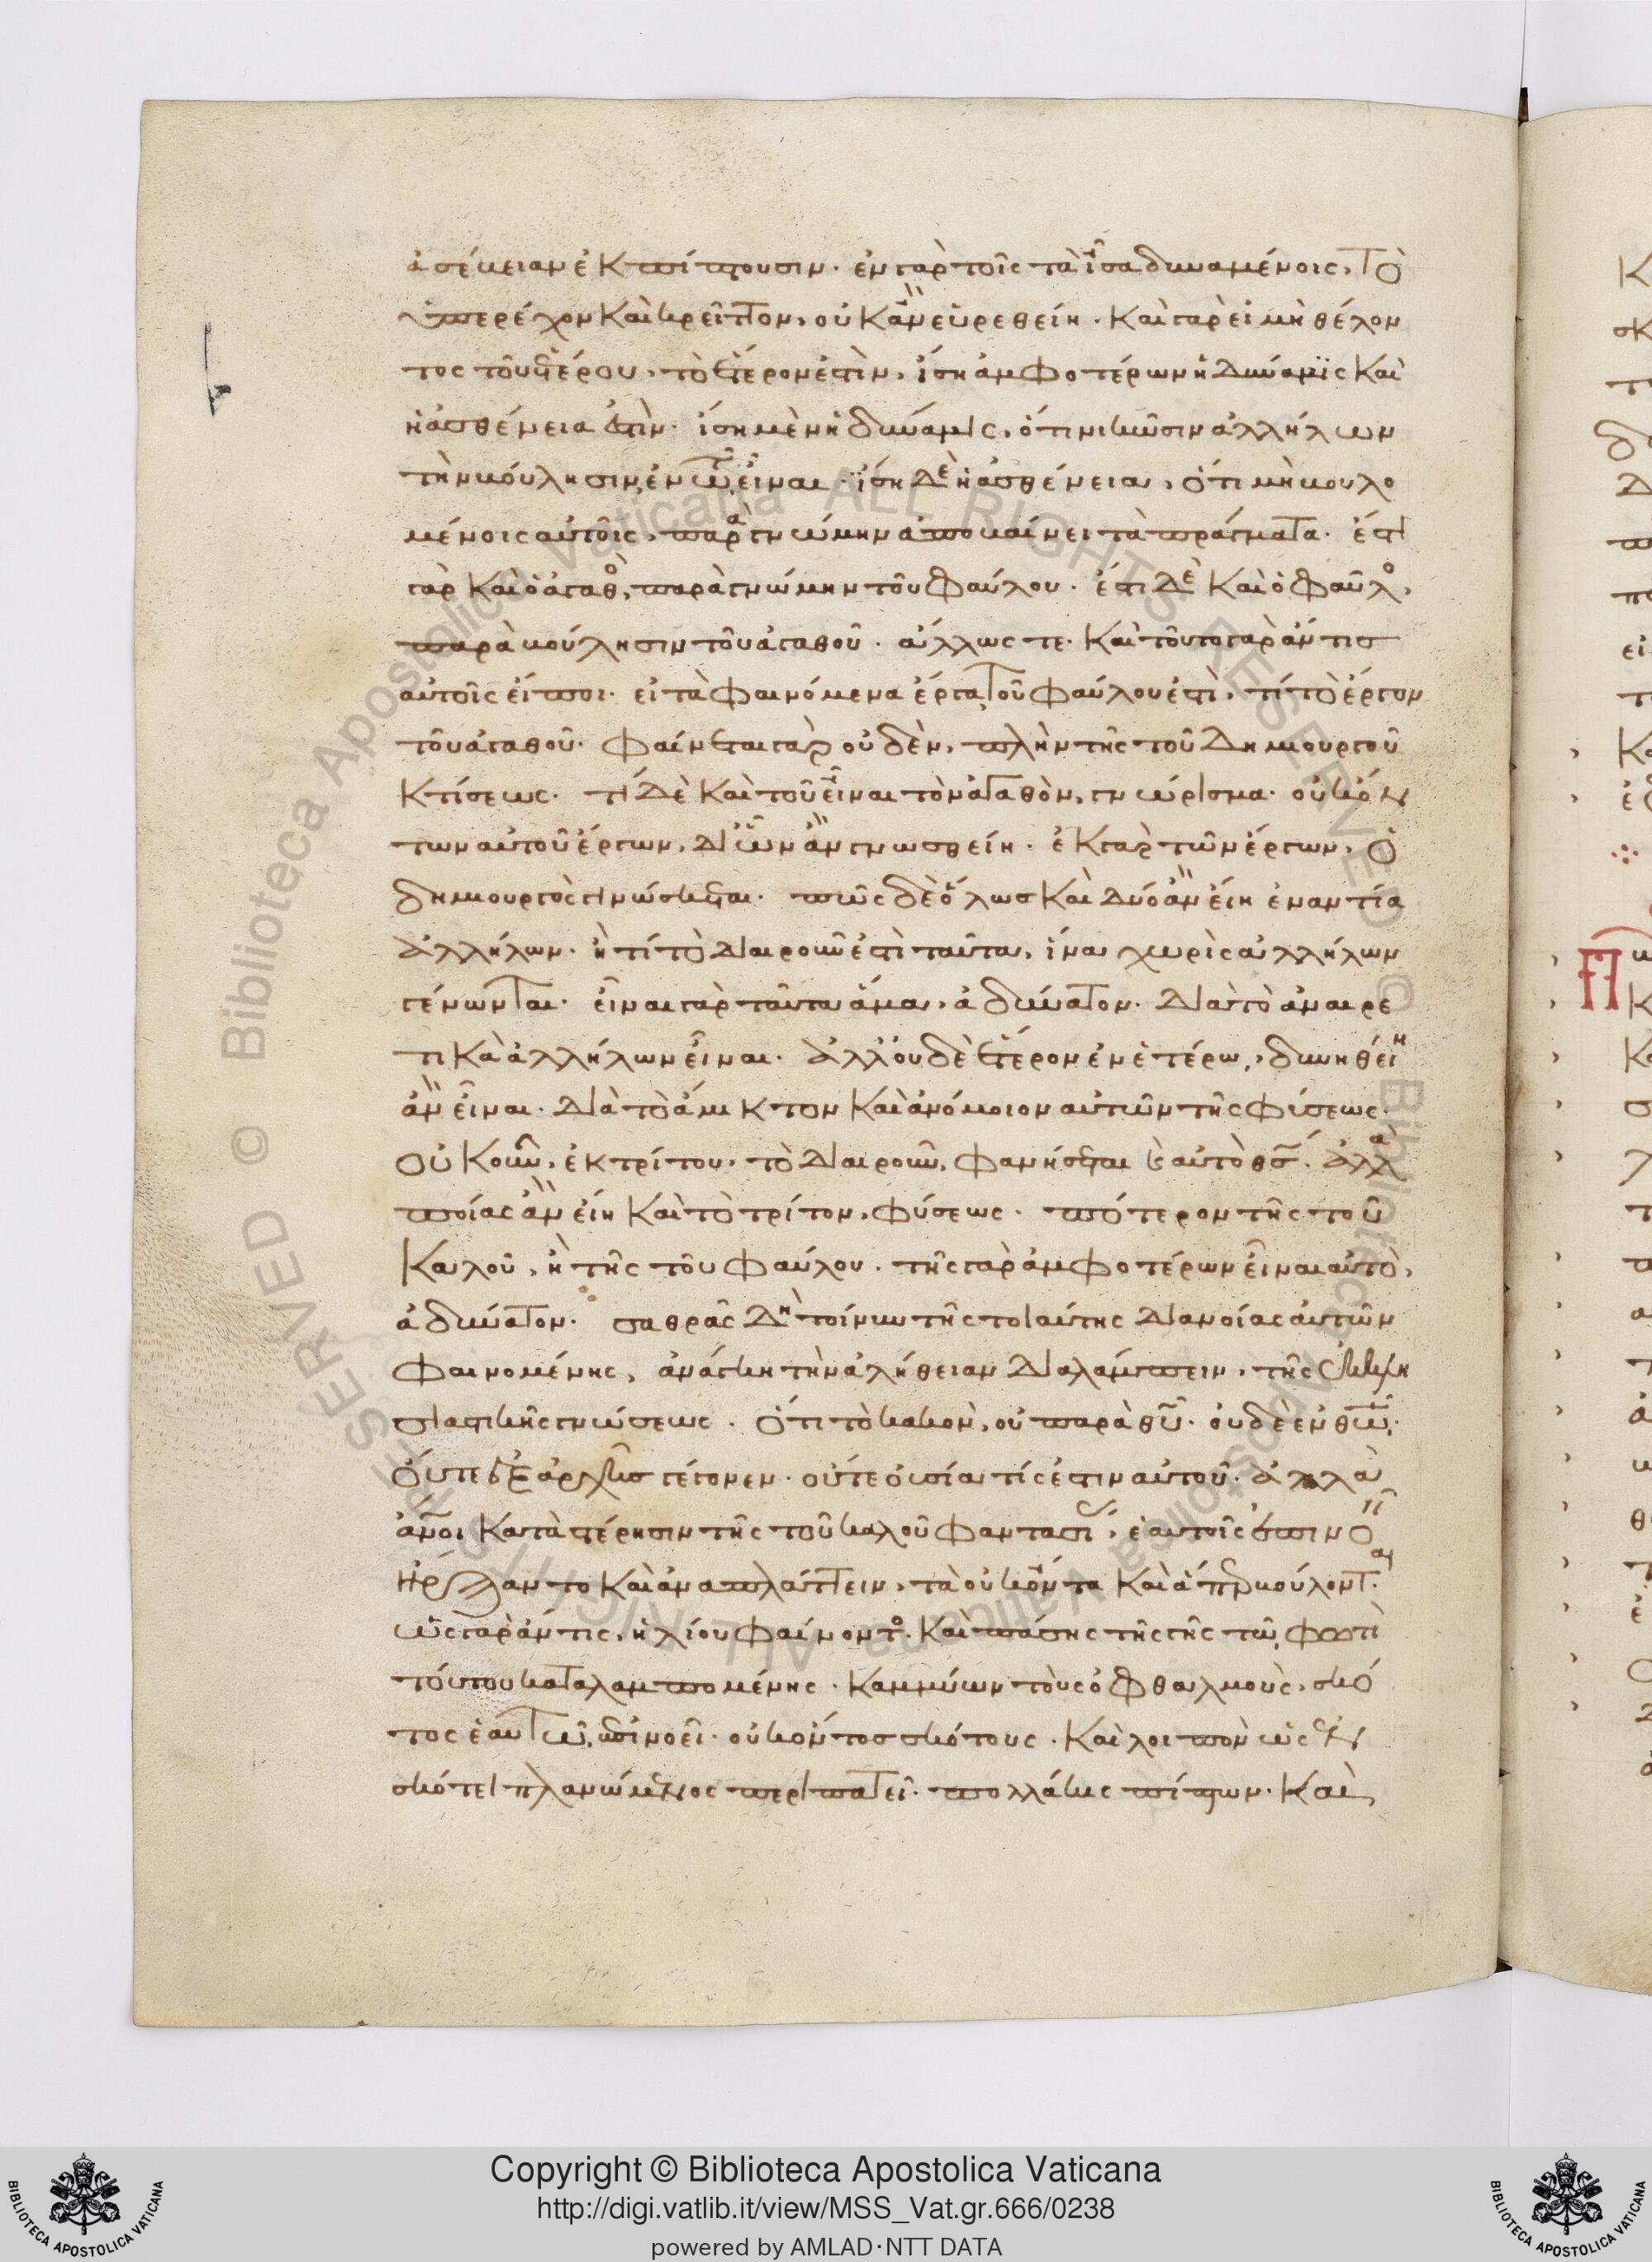 ἀσέβειαν ἐκπίπτουσιν· ἐν γὰρ τοῖς τὰ ἶσα δυναμένοις, τὸ
ὑπερέχον καὶ κρεῖττον, οὐκ ἂν εὑρεθείη· καὶ γὰρ εἰ μὴ θέλον
τος τοῦ ἑτέρου, τὸ ἕτερον ἐστὶν, ἴση ἀμφοτέρων ἡ δύναμϊς καὶ
ἡ ἀσθένεια ἐστὶν· ἴση μὲν ἡ δύναμις, ὅτι νικῶσιν ἀλλήλων
τὴν βούλησιν, ἐν τῶ εἶναι· ἴση δὲ ἡ ἀσθένεια, ὅτι μὴ βουλο
μένοις αὐτοῖς, παρὰ γνώμην ἀποβαίνει τὰ πράγματα· ἔστι
γὰρ καὶ ὁ ἀγαθὸς, παρὰ γνώμην τοῦ φαύλου· ἔστι δὲ καὶ ὁ φαῦλος,
παρὰ βούλησιν τοῦ ἀγαθοῦ· ἄλλως τε· καὶ τοῦτο γὰρ ἄν τισ
αὐτοῖς εἴποι· εἰ τὰ φαινόμενα ἔργα τοῦ φαύλου ἐστὶ, τί τὸ ἔργον
τοῦ ἀγαθοῦ· φαίνεται γὰρ οὐδὲν, πλὴν τῆς τοῦ δημιουργοῦ
κτίσεως· τί δὲ καὶ τοῦ εἶναι τὸν ἀγαθὸν, γνώρισμα· οὐκ ὄν
των αὐτοῦ ἔργων, δι' ὧν ἂν γνωσθείη· ἐκ γὰρ τῶν ἔργων, ὁ
δημιουργὸς γινώσκεται· πῶς δὲ ὅλωσ καὶ δύο ἂν εἴη ἐναντία
ἀλλήλων· ἢ τί τὸ διαιροῦν ἐστὶ ταῦτα, ἵνα χωρὶς ἀλλήλων
γένωνται· εἶναι γὰρ ταῦτα ἅμα, ἀδύνατον· διὰ τὸ ἀναιρε
τικὰ ἀλλήλων εἶναι· ἀλλ' οὐδὲ ἕτερον ἐν ἑτέρω, δυνηθείη
ἂν εἶναι· διὰ τὸ ἄμικτον καὶ ἀνόμοιον αὐτῶν τῆς φύσεως·
οὐκοῦν, ἐκ τρίτου, τὸ διαιροῦν, φανήσεται καὶ αὐτὸ θσ· ἀλλὰ
ποίας ἂν εἴη καὶ τὸ τρίτον, φύσεως· πότερον τῆς τοῦ
καλοῦ, ἢ τῆς τοῦ φαύλου· τῆς γὰρ ἀμφοτέρων εἶναι αὐτὸ,
ἀδύνατον· σαθρᾶς δὴ τοίνυν τῆς τοιαύτης διανοίας αὐτῶν
φαινομένης, ἀνάγκη τὴν ἀλήθειαν διαλάμπειν, τῆς ἐκκλη
σιαστικῆς γνώσεως· ὅτι τὸ κακὸν, οὐ παρὰ θυ· οὐδὲ ἐν θω·
οὔτε ἐξ ἀρχῆσ γέγονεν· οὔτε οὐσία τίς ἐστιν αὐτοῦ· ἀλλὰ
ἄνοι κατὰ στέρησιν τῆς τοῦ καλοῦ φαντασίας, ἑαυτοῖς ἐπινοεῖν
ἤρξαντο καὶ ἀναπλάττειν, τὰ οὐκ ὄντα καὶ ἅπερ βούλονται·
ὡς γὰρ ἄν τις, ἡλίου φαίνοντος· καὶ πάσης τῆς γῆς τῶ φωτὶ
τούτου καταλαμπομένης· καμμύων τοὺς ὀφθαλμοὺς, σκό
τος ἑαυτῶ ἐπινοεῖ· οὐκ ὄντοσ σκότους· καὶ λοιπὸν ὡς ἐν
σκότει πλανώμενος περιπατεῖ· πολλάκις πίπτων· καὶ
Copyright © Biblioteca Apostolica Vaticana
http://digi.vatlib.it/view/MSS_Vat.gr.666/0238
powered by AMLAD·NTT DATA